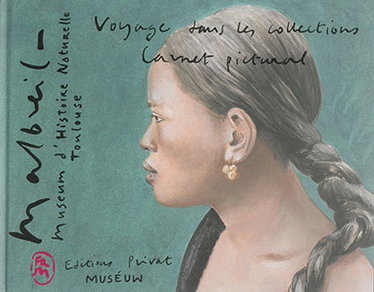 Malbreil –
Museum d'Histoire Naturelle
Toulouse
Voyage dans les collections
Carnet pictural
Editions Privat
MUSÉUM